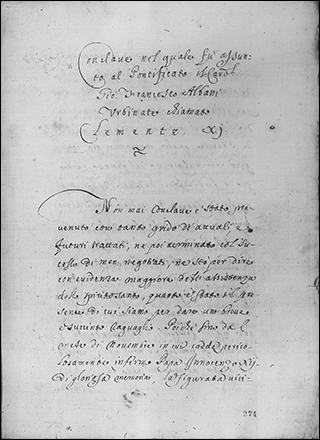 Conclave nel quale fu assun
to al Pontificato il Card.l
Gio Francesco Albani
Urbinate chiamato
Clemente XJ.
Non mai Conclave è stato pre
venuto con tanto grido di annali, e
futuri trattati, ne poi terminato col suc
cesso di men negotiati, ne sto per dire
con evidenza maggiore dell' assistenza
dello spirito santo, quanto è stato il pre
sente di cui siamo per dare un breve
e succinto raguaglio. Poiche fino da l
mese di Novembre in cui cadde perico
losamente infermo Papa Innocenzo XIJ.
di gloriosa memoria,
274